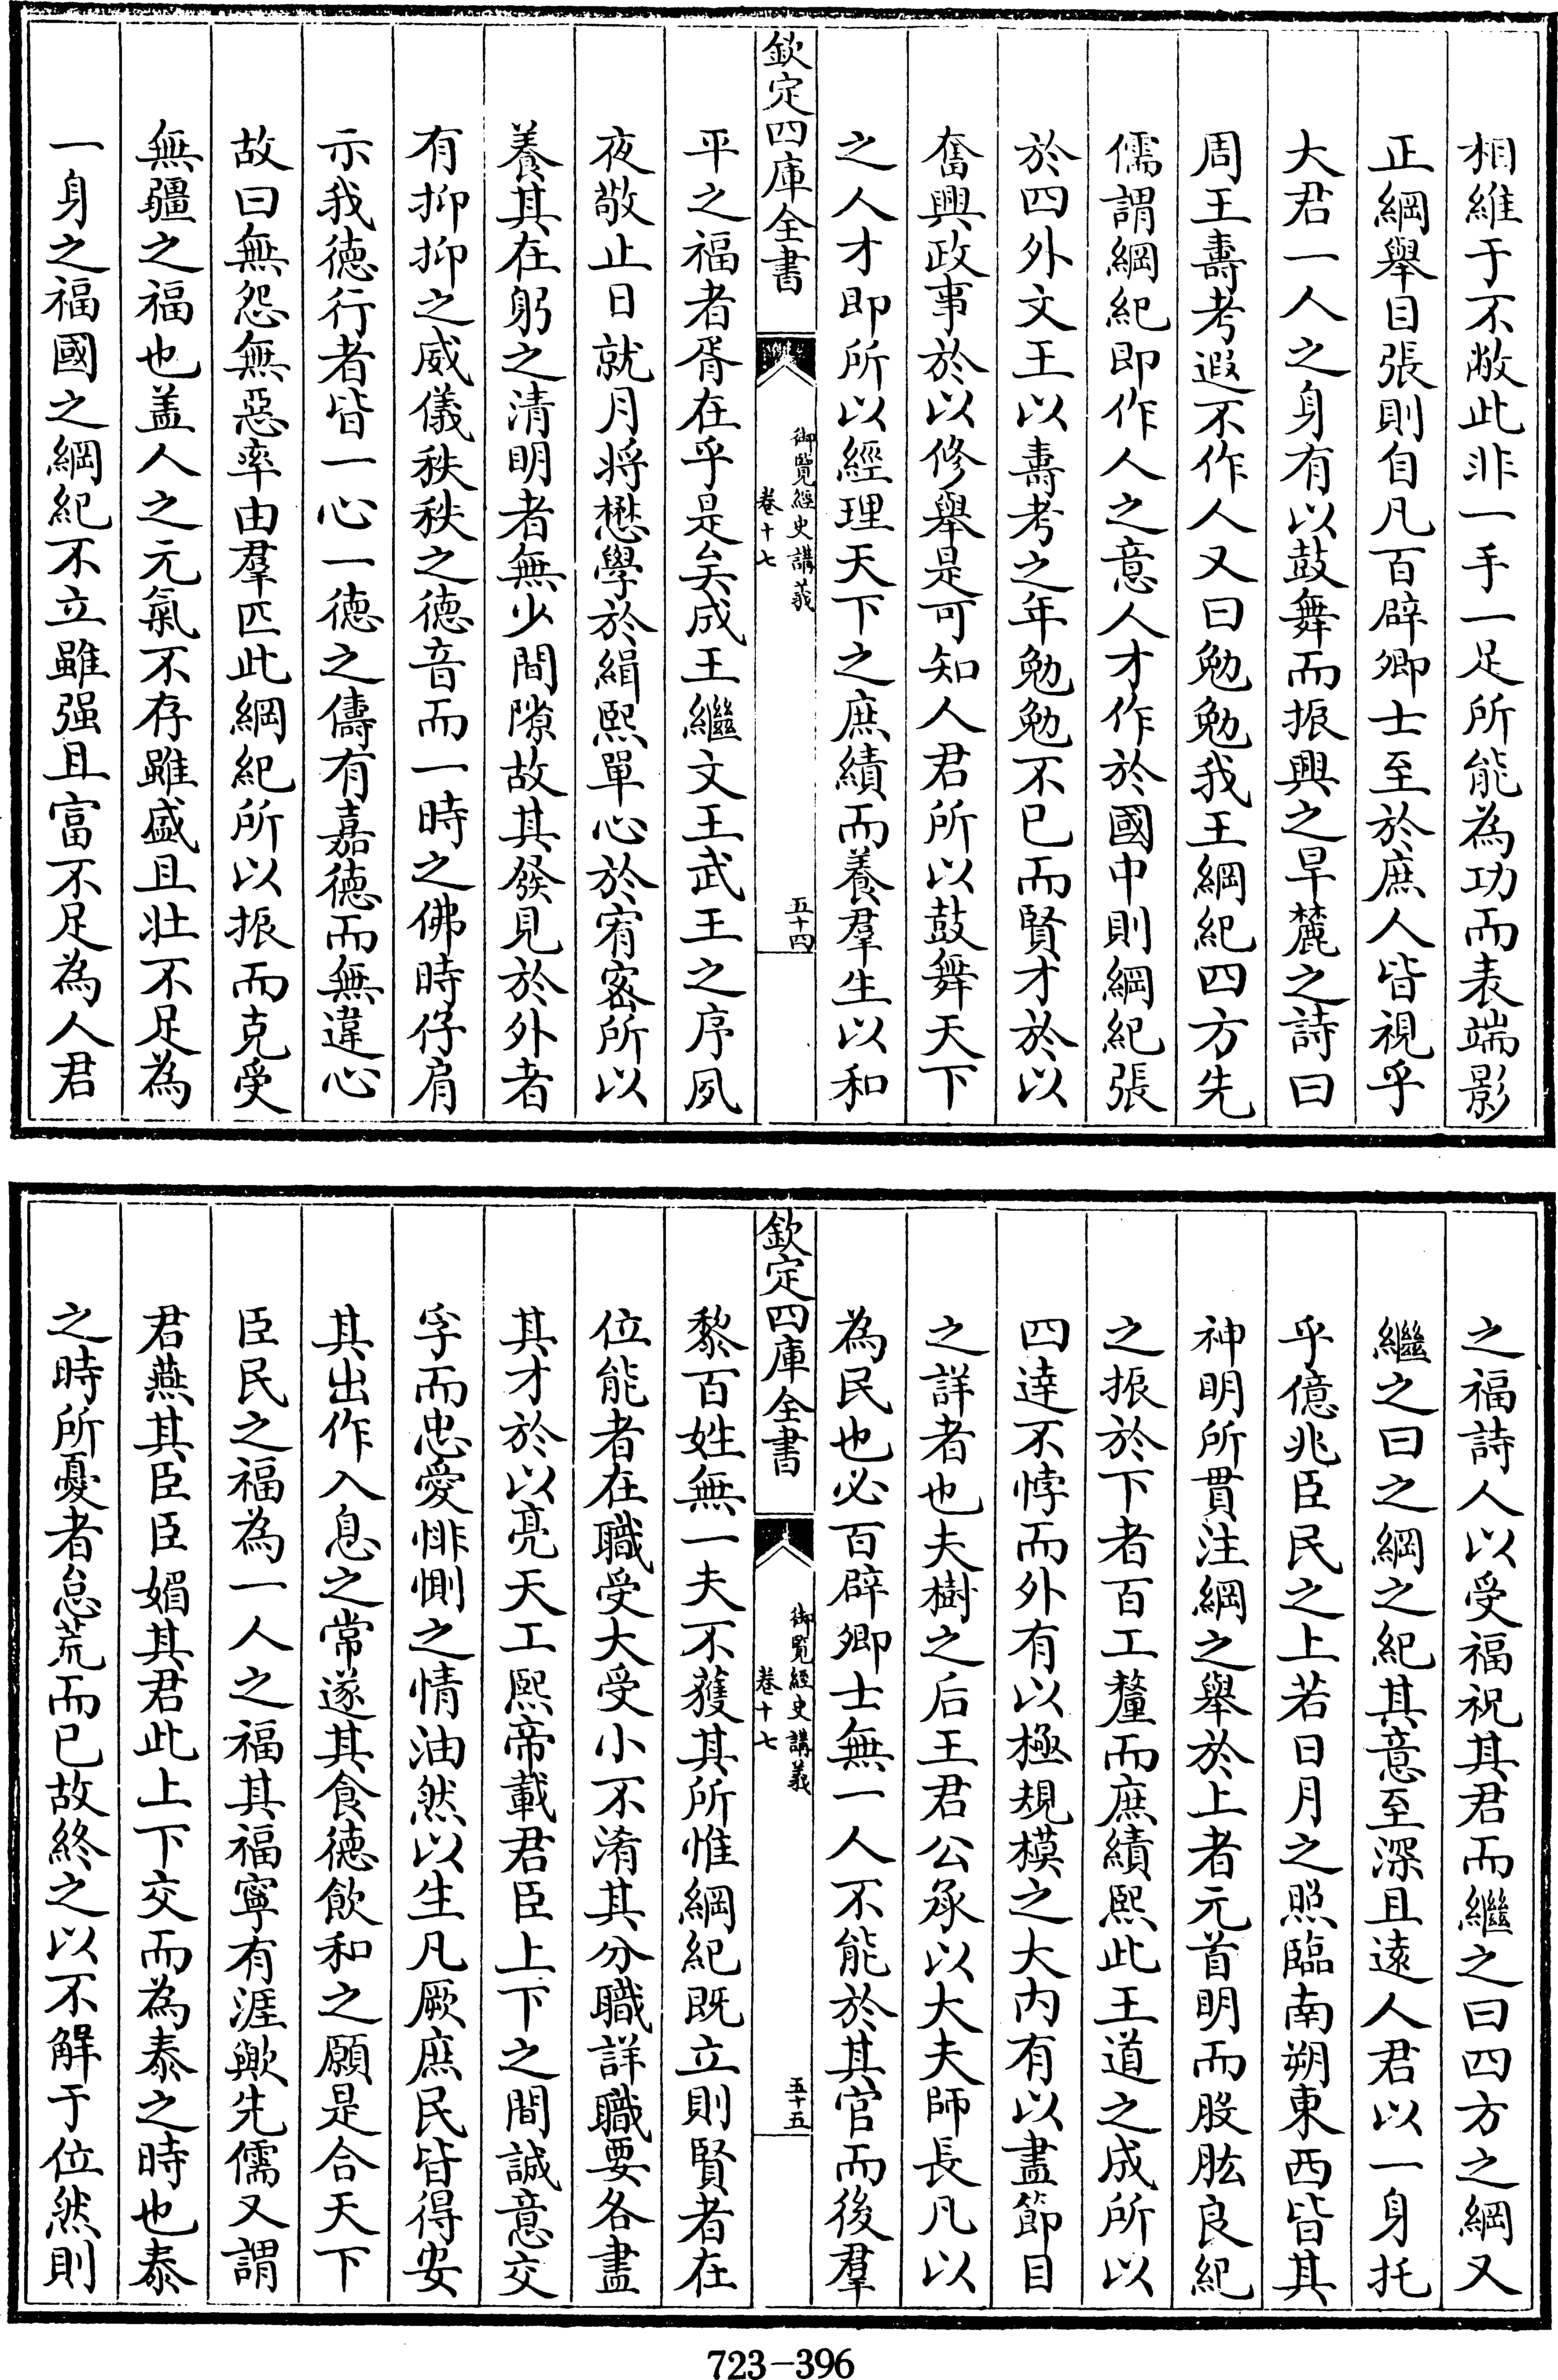 相維于不敝此非一手一足所能為功而表端影
正綱舉目張則自凡百辟卿士至於庶人皆視乎
大君一人之身有以鼓舞而振興之旱麓之詩曰
周王壽考遐不作人又曰勉勉我王綱紀四方先
儒謂綱紀即作人之意人才作於國中則綱紀張
於四外文王以壽考之年勉勉不已而賢才於以
奮興政事於以修舉是可知人君所以鼓舞天下
之人才即所以經理天下之庶績而養羣生以和
欽定四庫全書
御覽經史講義
卷十七
五十四
平之福者胥在乎是矣成王繼文王武王之序夙
夜敬止日就月將懋學於緝熙單心於宥密所以
養其在躬之清明者無少間隙故其發見於外者
有抑抑之威儀秩秩之德音而一時之佛時仔肩
示我德行者皆一心一德之儔有嘉德而無違心
故曰無怨無惡率由羣匹此綱紀所以振而克受
無疆之福也盖人之元氣不存雖盛且壯不足為
一身之福國之綱紀不立雖强且富不足為人君
之福詩人以受福祝其君而繼之曰四方之綱又
繼之曰之綱之紀其意至深且遠人君以一身托
乎億兆臣民之上若日月之照臨南朔東西皆其
神明所貫注綱之舉於上者元首明而股肱良紀
之振於下者百工釐而庶績熙此王道之成所以
四達不悖而外有以極規模之大内有以盡節目
之詳者也夫樹之后王君公承以大夫師長凡以
為民也必百辟卿士無一人不能於其官而後羣
欽定四庫全書
御覽經史講義
卷十七
五十五
黎百姓無一夫不獲其所惟綱紀既立則賢者在
位能者在職受大受小不淆其分職詳職要各盡
其才於以亮天工熙帝載君臣上下之間誠意交
孚而忠愛悱惻之情油然以生凡厥庶民皆得安
其出作入息之常遂其食德飲和之願是合天下
臣民之福為一人之福其福寧有涯歟先儒又謂
君燕其臣臣媚其君此上下交而為泰之時也泰
之時所憂者怠荒而已故終之以不解于位然則
723-396